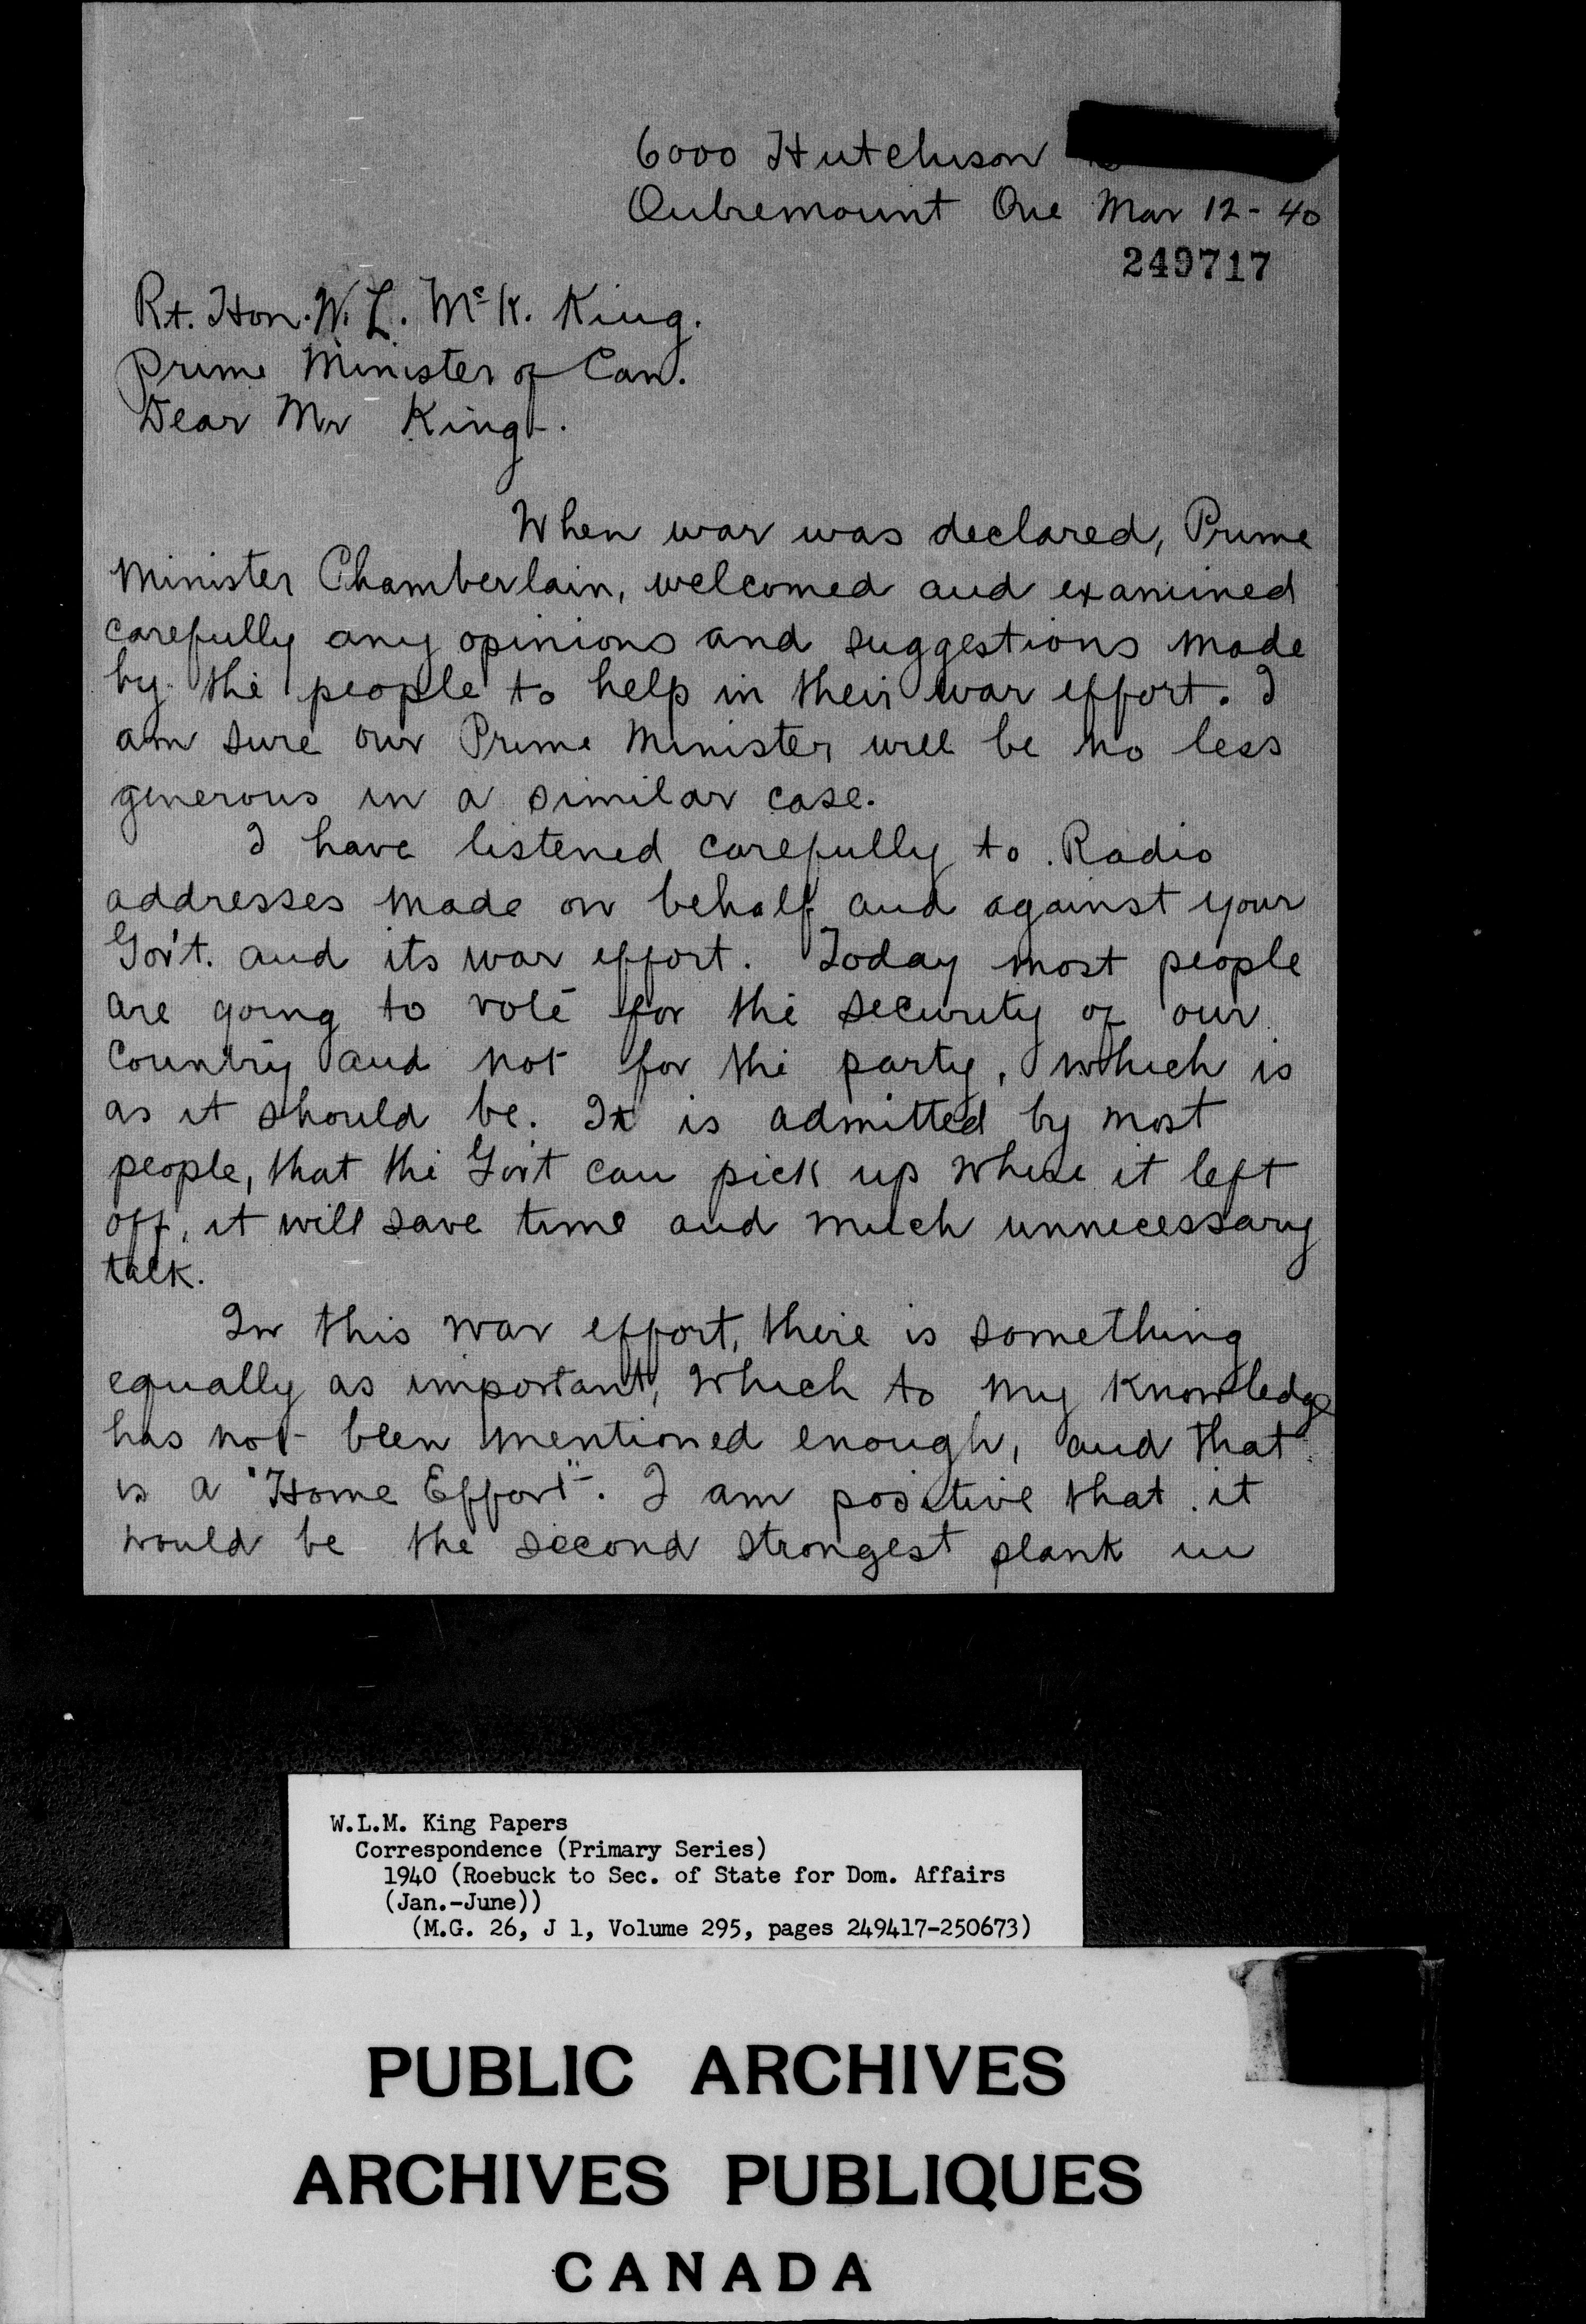 6000 Hutchison
Outremount Que Mar 12 - 40
249717
Rt. Hon. W. L. McK. King.
Prime Minister of Can.
Dear Mr King.
When war was declared, Prime
Minister Chamberlain, welcomed and examined
carefully any opinions and suggestions made
by the people to help in their war effort. I
am sure our Prime Minister will be no less
generous in a similar case.
I have listened carefully to Radio
addresses made on behalf and against your
Gov't. and its war effort. Today most people
are going to vote for the security of our
Country and not for the party, which is
as it should be. It is admitted by most
people, that the Gov't can pick up where it left
off, it will save time and much unnecessary
talk.
In this war effort, there is something
equally as important, which to my knowledge
has not been mentioned enough, and that
is a "Home Effort". I am positive that it
would be the second strongest plank in
W.L.M. King Papers
Correspondence (Primary Series)
1940 (Roebuck to Sec. of State for Dom. Affairs
(Jan.-June))
(M.G. 26, J 1, Volume 295, pages 249417-250673)
PUBLIC ARCHIVES
ARCHIVES PUBLIQUES
CANADA